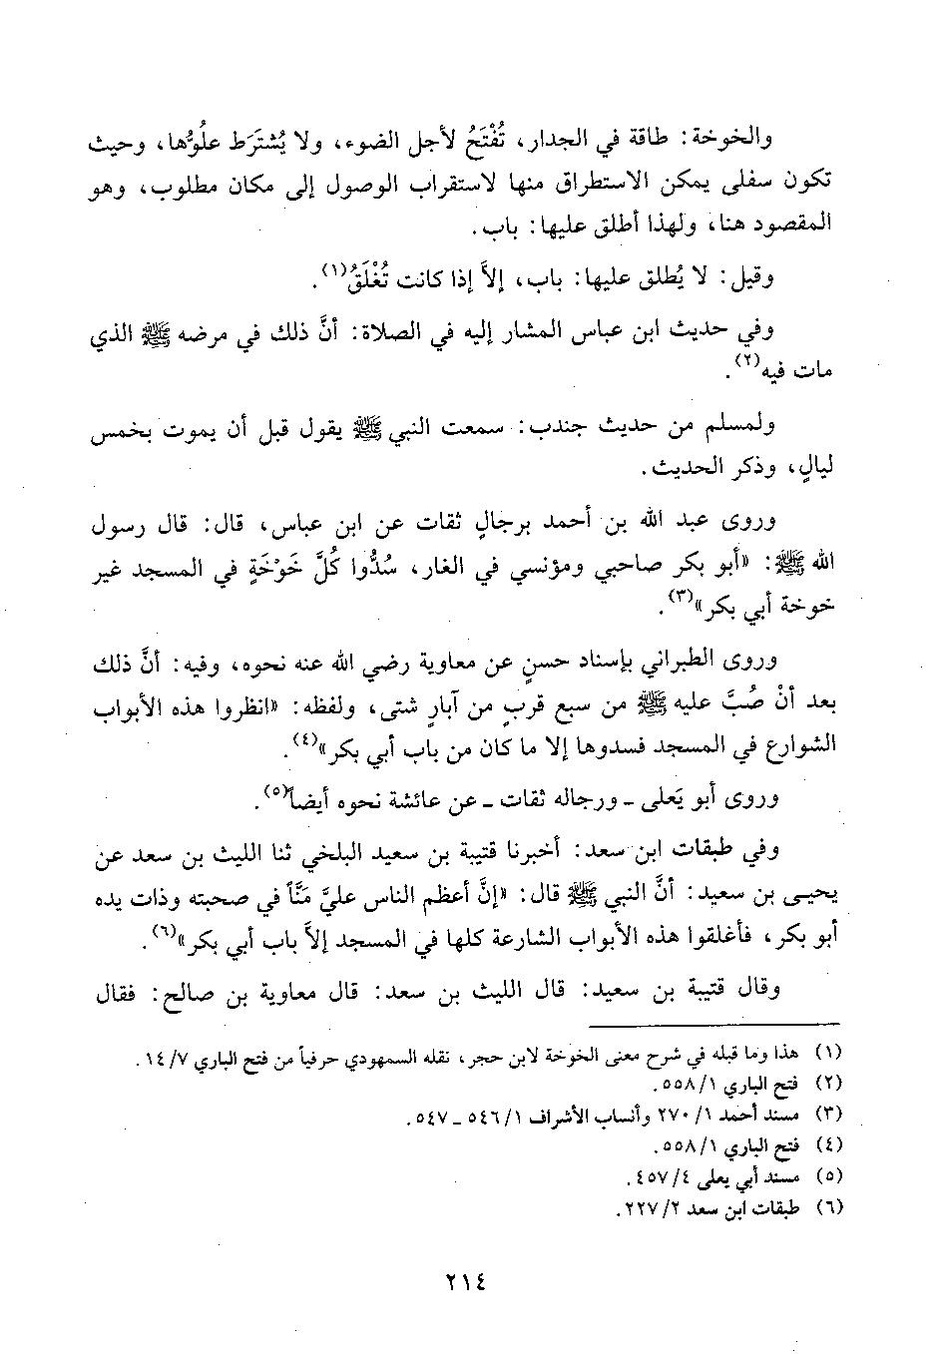 والخوخة: طاقة في الجدار، تُفْتَحُ لأجل الضوء، ولا يُشتَرَط علُوُّها، وحيث
تكون سفلى يمكن الاستطراق منها لاستقراب الوصول إلى مكان مطلوب، وهو
المقصود هنا، ولهذا أطلق عليها: باب.
وقيل: لا يُطلق عليها: باب، إلاَّ إذا كانت تُغْلَقُ(١).
وفي حديث ابن عباس المشار إليه في الصلاة: أنَّ ذلك في مرضه ﷺ الذي
مات فيه(٢).
ولمسلم من حديث جندب: سمعت النبي ﷺ يقول قبل أن يموت بخمس
ليالٍ، وذكر الحديث.
وروى عبد الله بن أحمد برجالٍ ثقات عن ابن عباس، قال: قال رسول
الله ﷺ: «أبو بكر صاحبي ومؤنسي في الغار، سُدُّوا كُلَّ خَوْخَةٍ في المسجد غير
خوخة أبي بكر»(٣).
وروى الطبراني بإسناد حسنٍ عن معاوية رضي الله عنه نحوه، وفيه: أنَّ ذلك
بعد أنْ صُبَّ عليه ﷺ من سبع قربٍ من آبارٍ شتى، ولفظه: «انظروا هذه الأبواب
الشوارع في المسجد فسدوها إلا ما كان من باب أبي بكر»(٤).
وروى أبو يَعلى ـ ورجاله ثقات ـ عن عائشة نحوه أيضاً(٥).
وفي طبقات ابن سعد: أخبرنا قتيبة بن سعيد البلخي ثنا الليث بن سعد عن
يحيـى بن سعيد: أنَّ النبي ﷺ قال: «إنَّ أعظم الناس عليَّ مَنَّاً في صحبته وذات يده
أبو بكر، فأغلقوا هذه الأبواب الشارعة كلها في المسجد إلاَّ باب أبي بكر»(٦).
وقال قتيبة بن سعيد: قال الليث بن سعد: قال معاوية بن صالح: فقال
(١) هذا وما قبله في شرح معنى الخوخة لابن حجر، نقله السمهودي حرفياً من فتح الباري ١٤/٧.
(٢) فتح الباري ٥٥٨/١.
(٣) مسند أحمد ٢٧٠/١ وأنساب الأشراف ٥٤٦/١ ـ ٥٤٧.
(٤) فتح الباري ٥٥٨/١.
(٥) مسند أبي يعلى ٤٥٧/٤.
(٦) طبقات ابن سعد ٢٢٧/٢.
٢١٤